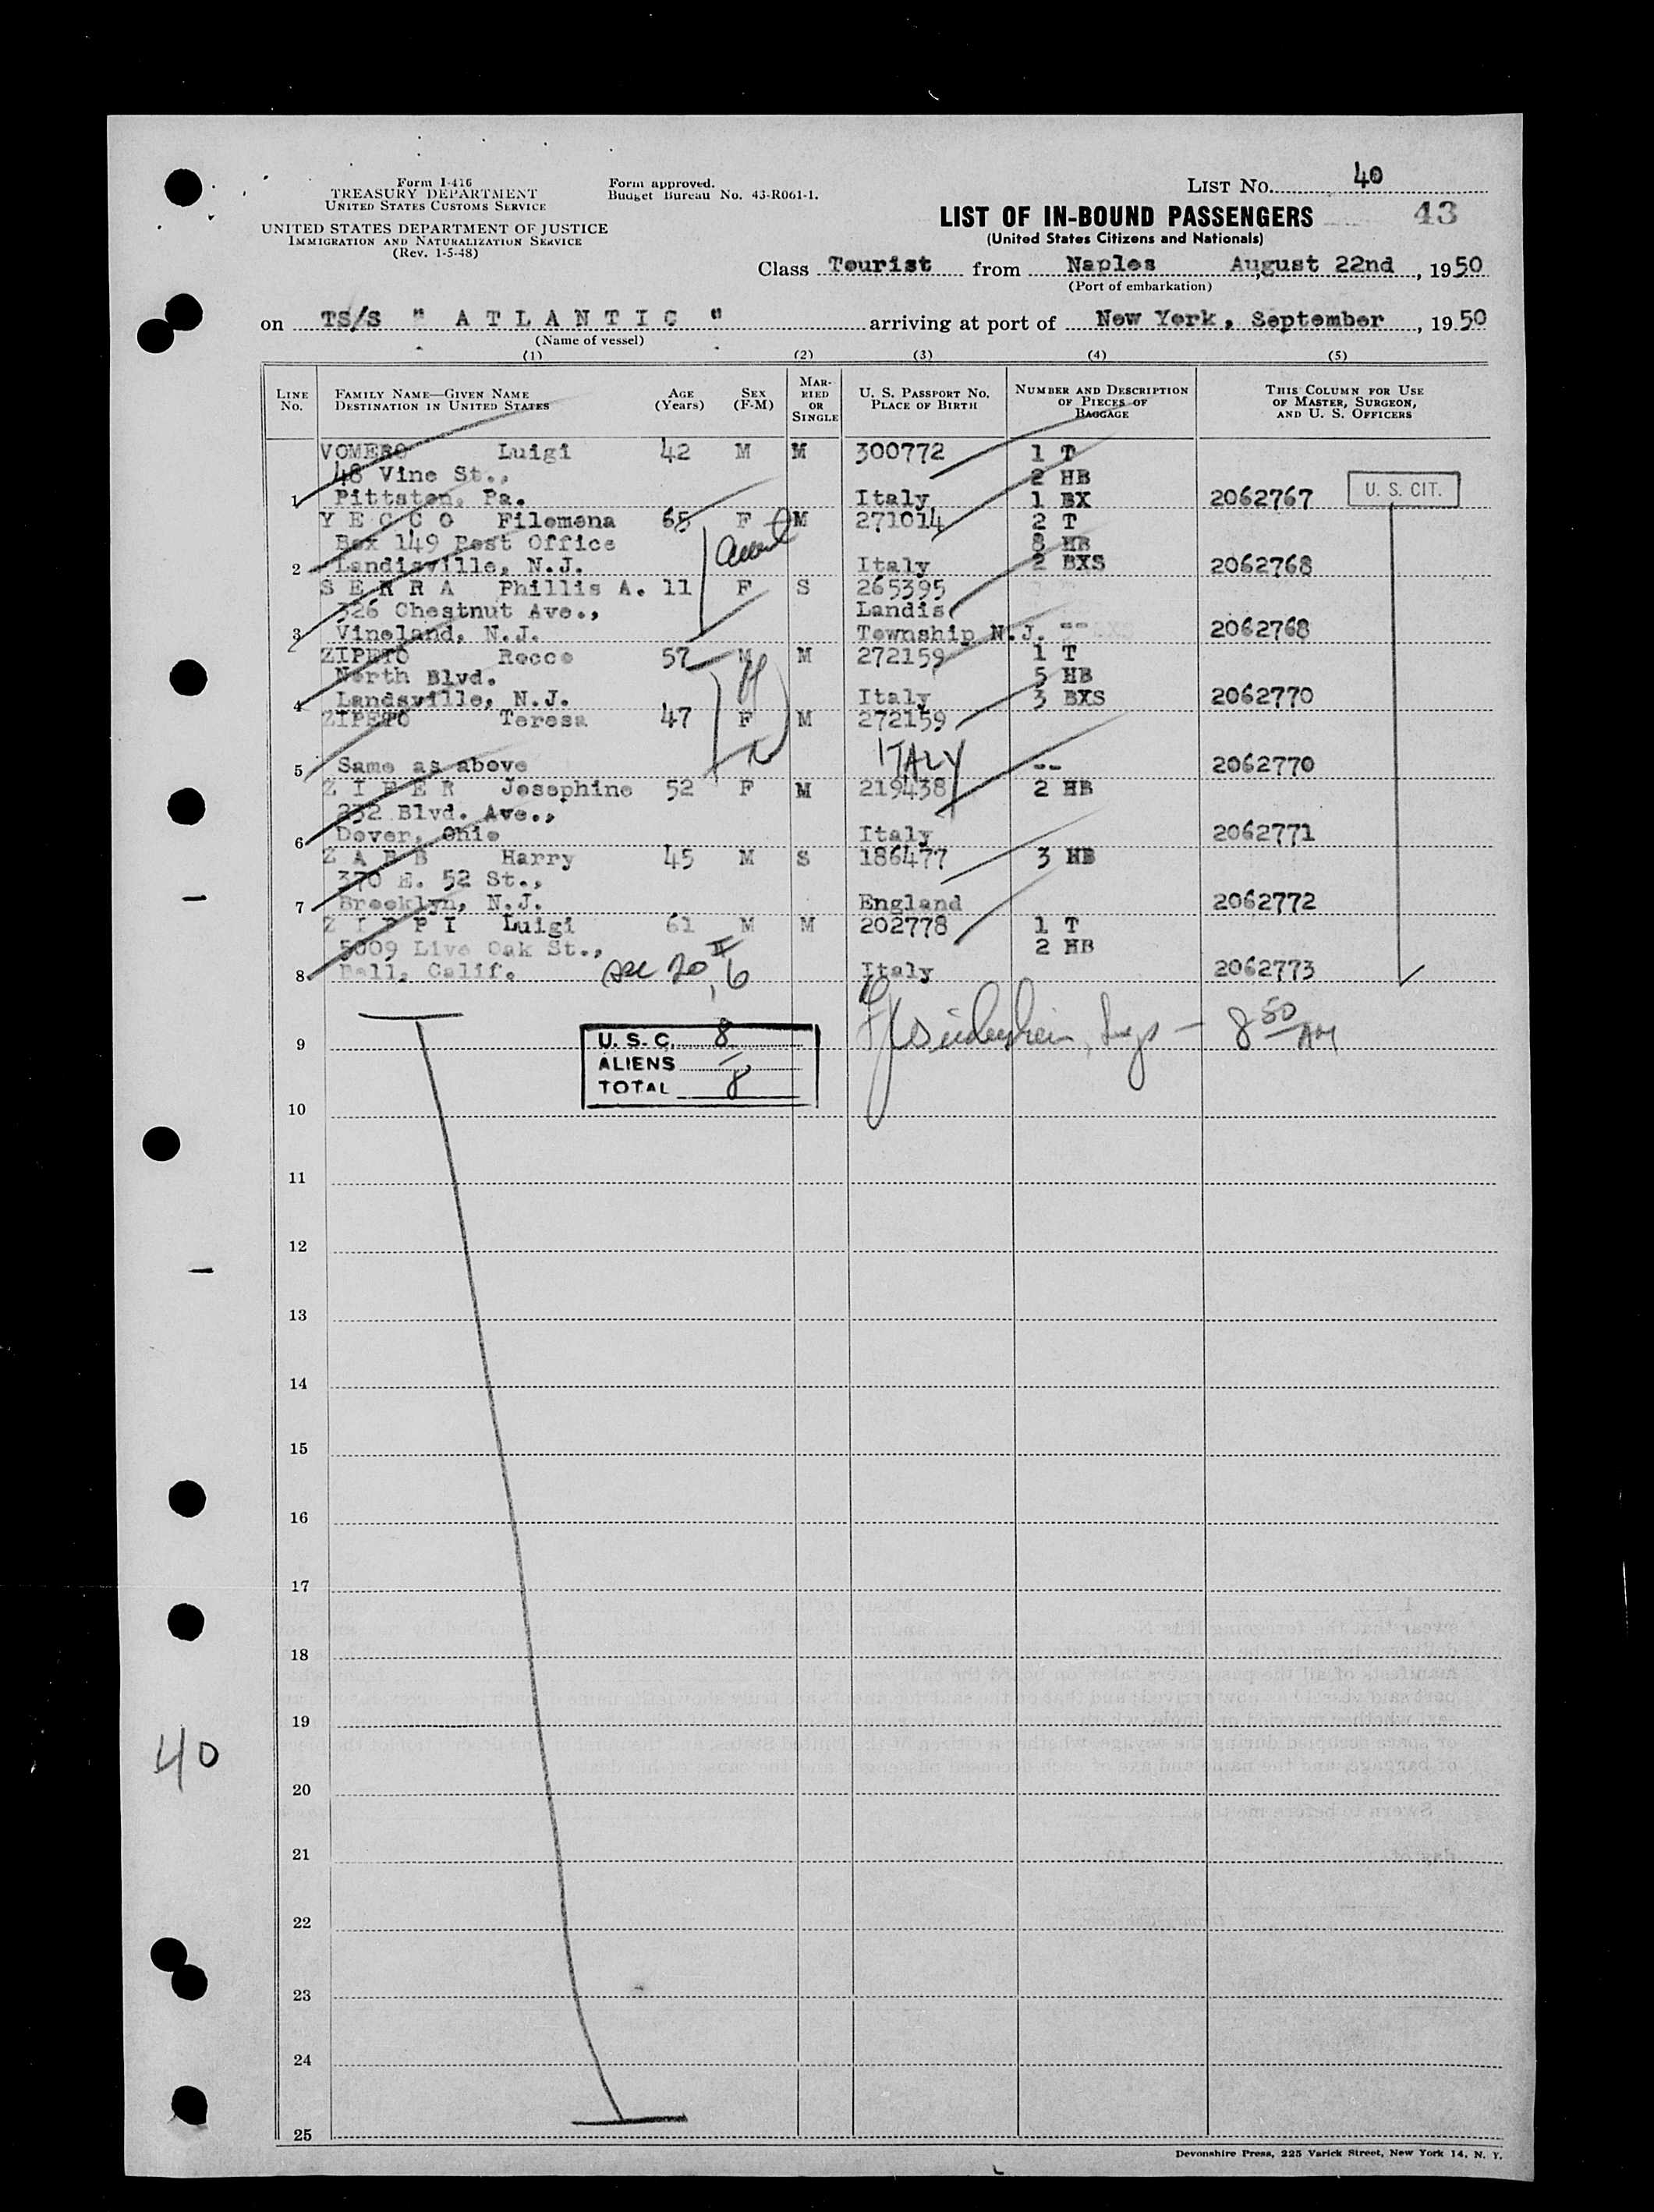 Form I-416
TREASURY DEPARTMENT
UNITED STATES CUSTOMS SERVICE
UNITED STATES DEPARTMENT OF JUSTICE
IMMIGRATION AND NATURALIZATION SERVICE
(Rev. 1-5-48)
Form approved.
Budget Bureau No. 43-R061-1.
LIST No. 40
LIST OF IN-BOUND PASSENGERS 43
(United States Citizens and Nationals)
Class Tourist from Naples August 22nd, 1950
(Port of embarkation)
on TS/S " A T L A N T I C " arriving at port of New York, September, 1950
(Name of vessel)
(1) (2) (3) (4) (5)
LINE No. FAMILY NAME—GIVEN NAME DESTINATION IN UNITED STATES AGE (Years) SEX (F-M) MARRIED OR SINGLE U. S. PASSPORT NO. PLACE OF BIRTH NUMBER AND DESCRIPTION OF PIECES OF BAGGAGE THIS COLUMN FOR USE OF MASTER, SURGEON, AND U. S. OFFICERS
VOMERO Luigi 42 M M 300772 1 T
48 Vine St., 2 HB
1 Pittston, Pa. Italy 1 BX 2062767 U. S. CIT.
Y E C C O Filomena 65 F M 271014 2 T
Box 149 Post Office 8 HB
2 Landisville, N.J. Italy 2 BXS 2062768
S E R R A Phillis A. 11 F S 265395
326 Chestnut Ave., Landis
3 Vineland, N.J. Township N.J. -- 2062768
ZIPETO Rocco 57 M M 272159 1 T
North Blvd. 5 HB
4 Landsville, N.J. Italy 3 BXS 2062770
ZIPETO Teresa 47 F M 272159
ITALY
5 Same as above -- 2062770
Z I F E R Josephine 52 F M 219438 2 HB
232 Blvd. Ave.,
6 Dover, Ohio Italy 2062771
Z A B B Harry 45 M S 186477 3 HB
370 E. 52 St.,
7 Brooklyn, N.J. England 2062772
Z I P P I Luigi 61 M M 202778 1 T
5009 Live Oak St., 2 HB
8 Bell, Calif. Italy 2062773
8 50 AM
9 U. S. C. 8
ALIENS —
TOTAL 8
10
11
12
13
14
15
16
17
18
19
40
20
21
22
23
24
25
Devonshire Press, 225 Varick Street, New York 14, N. Y.